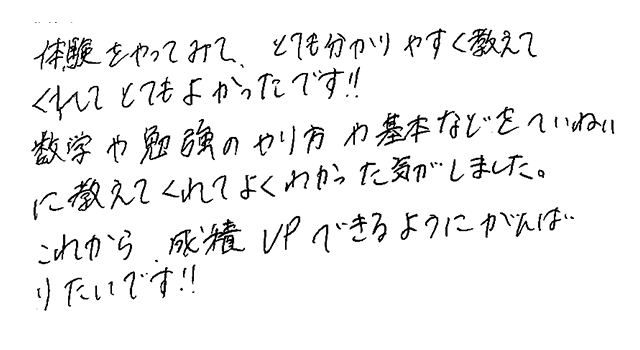 体験をやってみて、とても分かりやすく教えて
くれてとてもよかったです!!
数学や勉強のやり方や基本などをていねい
に教えてくれてよくわかった気がしました。
これから、成積UPできるようにがんば
りたいです!!